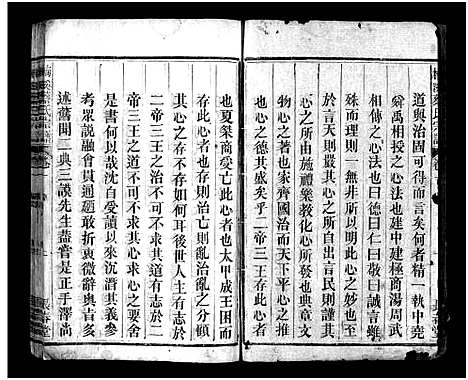 道與治固可得而言矣何者精一執中堯
舜禹相授之心法也建中建極商湯周武
相傳之心法也曰德曰仁曰敬曰誠言雖
殊而理則一無非所以明此心之妙也至
於言天則嚴其心之所自出言民則謹其
心之所由施禮樂教化心之發也典章文
物心之著也家齊國治而天下平心之推
也心之德其盛矣乎二帝三王存此心者
也夏桀商受亡此心者也太甲成王困而
存此心者也存則治亡則亂治亂之分顧
其心之存不存如何耳後世人主有志於
二帝三王之治不可不求其道有志於
二帝三王之道不可不求其心求心之要舍
是書何以哉沈自受讀以來沈潛其義參
考眾說融會貫通廼敢折衷微辭奧旨多
述舊聞二典三謨先生蓋嘗是正手澤尚
長春堂